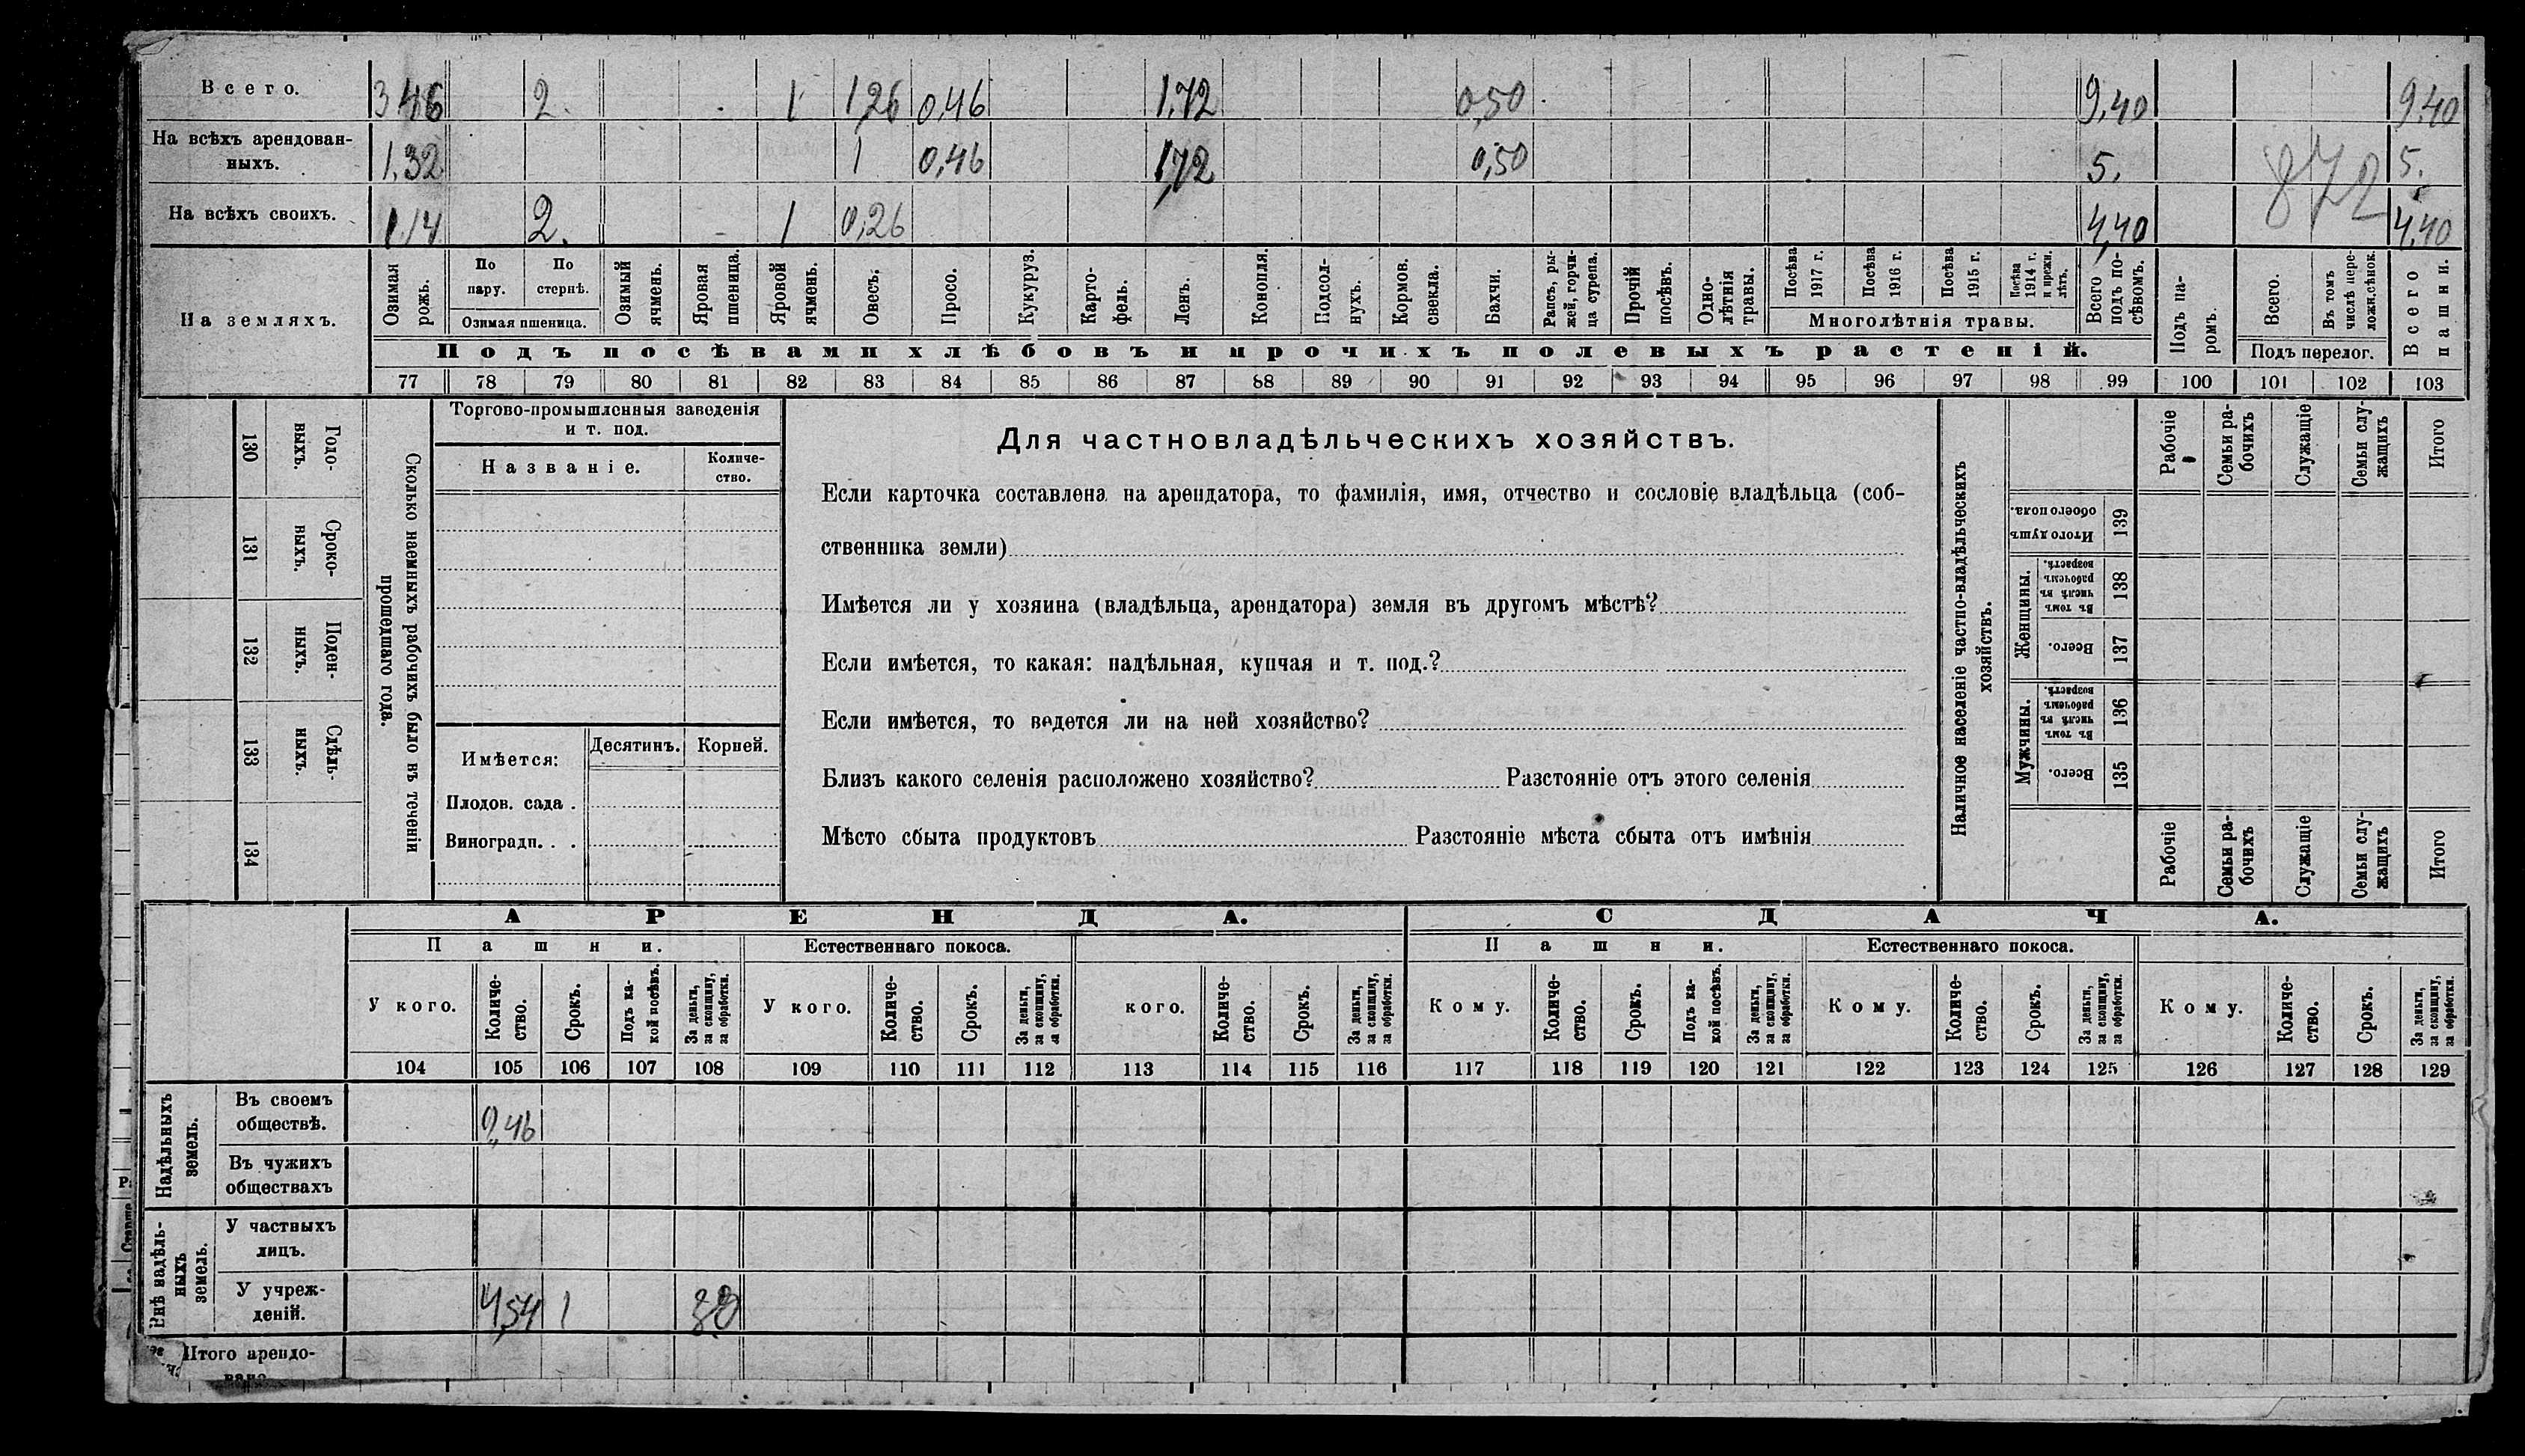 Всего. 3 46 2. 1 1,26 0,46 1,72 0,50 9,40 9.40
На всѣхъ арендован-
ныхъ. 1,32 1 0,46 1,72 0,50 5. 5.
872
На всѣхъ своихъ. 1.14 2. 1 0,26 4,40 4,40
На земляхъ.
Озимая рожь.
По пару.
По стернѣ.
Озимая пшеница.
Озимый ячмень.
Яровая пшеница.
Яровой ячмень.
Овесъ.
Просо.
Кукуруз.
Карто-
фель.
Ленъ.
Конопля.
Подсол-
нухъ.
Кормов.
свекла.
Бахчи.
Рапсъ, ры-
жей, горчи-
ца сурепа.
Прочій
посѣвъ.
Одно-
лѣтнія
травы.
Посѣва 1917 г.
Посѣва 1916 г.
Посѣва 1915 г.
Посѣва 1914 г. и прежн. лѣтъ.
Многолѣтнія травы.
Всего подъ по-
сѣвомъ.
Подъ па-
ромъ.
Всего.
Въ томъ числѣ пере-
лож. сѣнок.
Подъ перелог.
Всего пашни.
Подъ посѣвами хлѣбовъ и прочихъ полевыхъ растеній.
77 78 79 80 81 82 83 84 85 86 87 88 89 90 91 92 93 94 95 96 97 98 99 100 101 102 103
Сколько наемныхъ рабочихъ было въ теченіи
прошедшаго года.
Годо-
выхъ.
130
Сроко-
ныхъ.
131
Поден-
ныхъ.
132
Сдѣль-
ныхъ.
133
134
Торгово-промышленныя заведенія
и т. под.
Названіе.
Количе-
ство.
Имѣется: Десятинъ. Корней.
Плодов. сада .
Виноградн. . .
Для частновладѣльческихъ хозяйствъ.
Если карточка составлена на арендатора, то фамилія, имя, отчество и сословіе владѣльца (соб-
ственника земли)
Имѣется ли у хозяина (владѣльца, арендатора) земля въ другомъ мѣстѣ?
Если имѣется, то какая: надѣльная, купчая и т. под.?
Если имѣется, то ведется ли на ней хозяйство?
Близъ какого селенія расположено хозяйство? Разстояніе отъ этого селенія
Мѣсто сбыта продуктовъ Разстояніе мѣста сбыта отъ имѣнія
Наличное населеніе частно-владѣльческихъ
хозяйствъ.
Рабочіе
Семьи ра-
бочихъ
Служащіе
Семьи слу-
жащихъ
Итого
Итого душъ
обоего пола.
139
Женщины.
Въ томъ числѣ въ рабочемъ возрастѣ.
138
Всего.
137
Мужчины.
Въ томъ числѣ въ рабочемъ возрастѣ.
136
Всего.
135
Рабочіе
Семьи ра-
бочихъ
Служащіе
Семьи слу-
жащихъ
Итого
АРЕНДА. СДАЧА.
Пашни. Естественнаго покоса. Пашни. Естественнаго покоса.
У кого.
Количе-
ство.
Срокъ.
Подъ ка-
кой посѣвъ.
За деньги,
за скопщину,
за обработки.
У кого.
Количе-
ство.
Срокъ.
За деньги,
за скопщину,
за обработки.
кого.
Количе-
ство.
Срокъ.
За деньги,
за скопщину,
за обработки.
Кому.
Количе-
ство.
Срокъ.
Подъ ка-
кой посѣвъ.
За деньги,
за скопщину,
за обработки.
Кому.
Количе-
ство.
Срокъ.
За деньги,
за скопщину,
за обработки.
Кому.
Количе-
ство.
Срокъ.
За деньги,
за скопщину,
за обработки.
104 105 106 107 108 109 110 111 112 113 114 115 116 117 118 119 120 121 122 123 124 125 126 127 128 129
Надѣльныхъ
земель.
Въ своемъ
обществѣ. 0,46
Въ чужихъ
обществахъ
Внѣ надѣль-
ныхъ
земель.
У частныхъ
лицъ.
У учреж-
деній. 4,54 1
Итого арендо-
вано